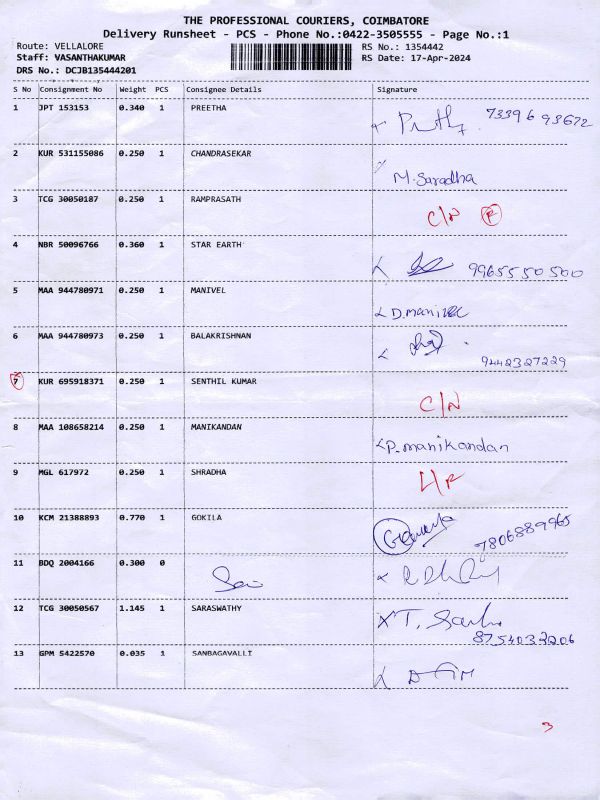 THE PROFESSIONAL COURIERS, COIMBATORE
Delivery Runsheet - PCS - Phone No.:0422-3505555 - Page No.:1
Route: VELLALORE RS No.: 1354442
Staff: VASANTHAKUMAR RS Date: 17-Apr-2024
DRS No.: DCJB135444201
S No Consignment No Weight PCS Consignee Details Signature
1 JPT 153153 0.340 1 PREETHA 73396 93672
2 KUR 531155086 0.250 1 CHANDRASEKAR M. Saradha
3 TCG 30050187 0.250 1 RAMPRASATH C/N R
4 NBR 50096766 0.360 1 STAR EARTH 9965550500
5 MAA 944780971 0.250 1 MANIVEL D.manivel
6 MAA 944780973 0.250 1 BALAKRISHNAN
9442327229
7 KUR 695918371 0.250 1 SENTHIL KUMAR C/N
8 MAA 108658214 0.250 1 MANIKANDAN P. manikandan
9 MGL 617972 0.250 1 SHRADHA
10 KCM 21388893 0.770 1 GOKILA 7806889965
11 BDQ 2004166 0.300 0
12 TCG 30050567 1.145 1 SARASWATHY
8754032206
13 GPM 5422570 0.035 1 SANBAGAVALLI
3